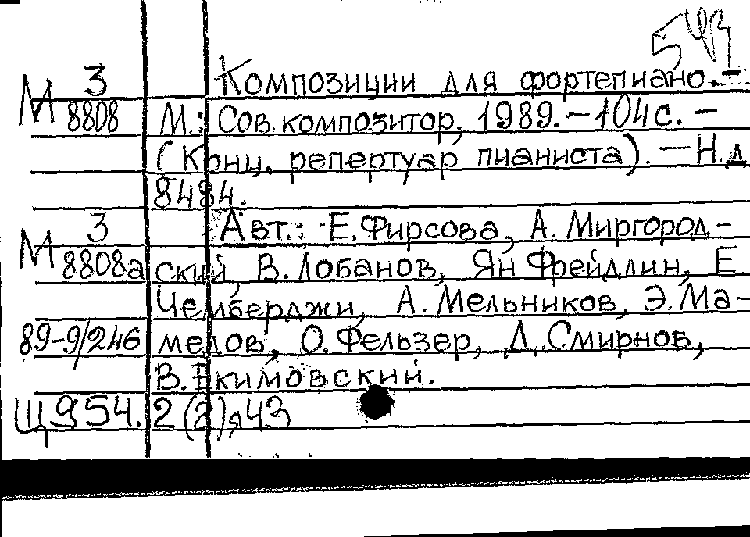 543
М 3 Композиции для фортепиано.–
8808 М.: Сов. композитор, 1989.–104с.–
(Конц. репертуар пианиста).–Н.д
8484.
М 3 Авт.: Е.Фирсова, А. Миргород-
8808а ский, В.Лобанов, Ян Фрейдлин, Е
Чемберджи, А.Мельников, Э.Ма-
89-9/246 медов, О.Фельзер, Д.Смирнов,
В.Екимовский.
Щ954.2(2)я43